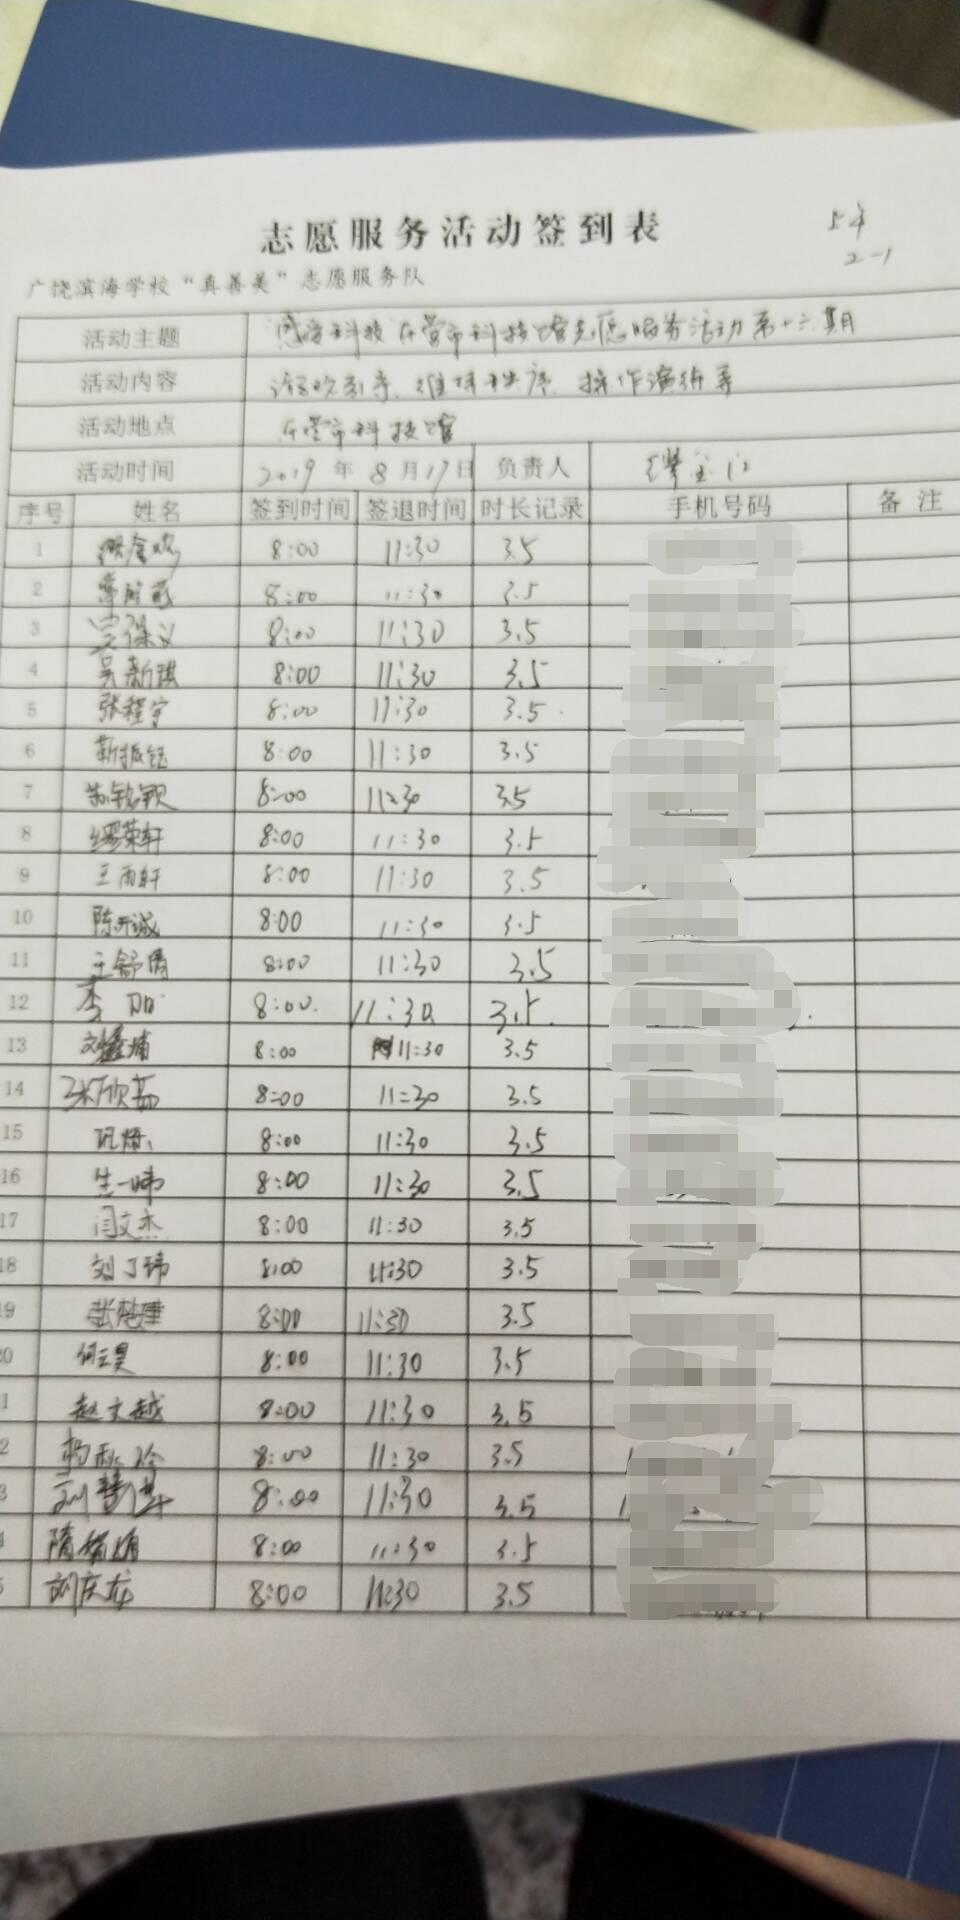 志愿服务活动签到表
2-1
广饶滨海学校“真善美”志愿服务队
活动主题 科技 东营市科技馆志愿服务活动第十六期
活动内容 游览引导、维持秩序、操作演练等
活动地点 东营市科技馆
活动时间 2019年8月17日 负责人
序号 姓名 签到时间 签退时间 时长记录 手机号码 备注
1 8:00 11:30 3.5
2 8:00 11:30 3.5
3 8:00 11:30 3.5
4 吴新琪 8:00 11:30 3.5
5 张程宇 8:00 11:30 3.5
6 靳振钰 8:00 11:30 3.5
7 8:00 11:30 3.5
8 缪荣轩 8:00 11:30 3.5
9 王雨轩 8:00 11:30 3.5
10 陈开诚 8:00 11:30 3.5
11 王舒 8:00 11:30 3.5
12 李 8:00 11:30 3.5
13 刘鑫 8:00 11:30 3.5
14 张欣茹 8:00 11:30 3.5
15 8:00 11:30 3.5
16 生一 8:00 11:30 3.5
17 闫文杰 8:00 11:30 3.5
18 刘丁玮 8:00 11:30 3.5
9 张 8:00 11:30 3.5
0 何云昊 8:00 11:30 3.5
1 赵文越 8:00 11:30 3.5
2 杨 8:00 11:30 3.5
3 8:00 11:30 3.5
隋 8:00 11:30 3.5
5 刘庆龙 8:00 11:30 3.5